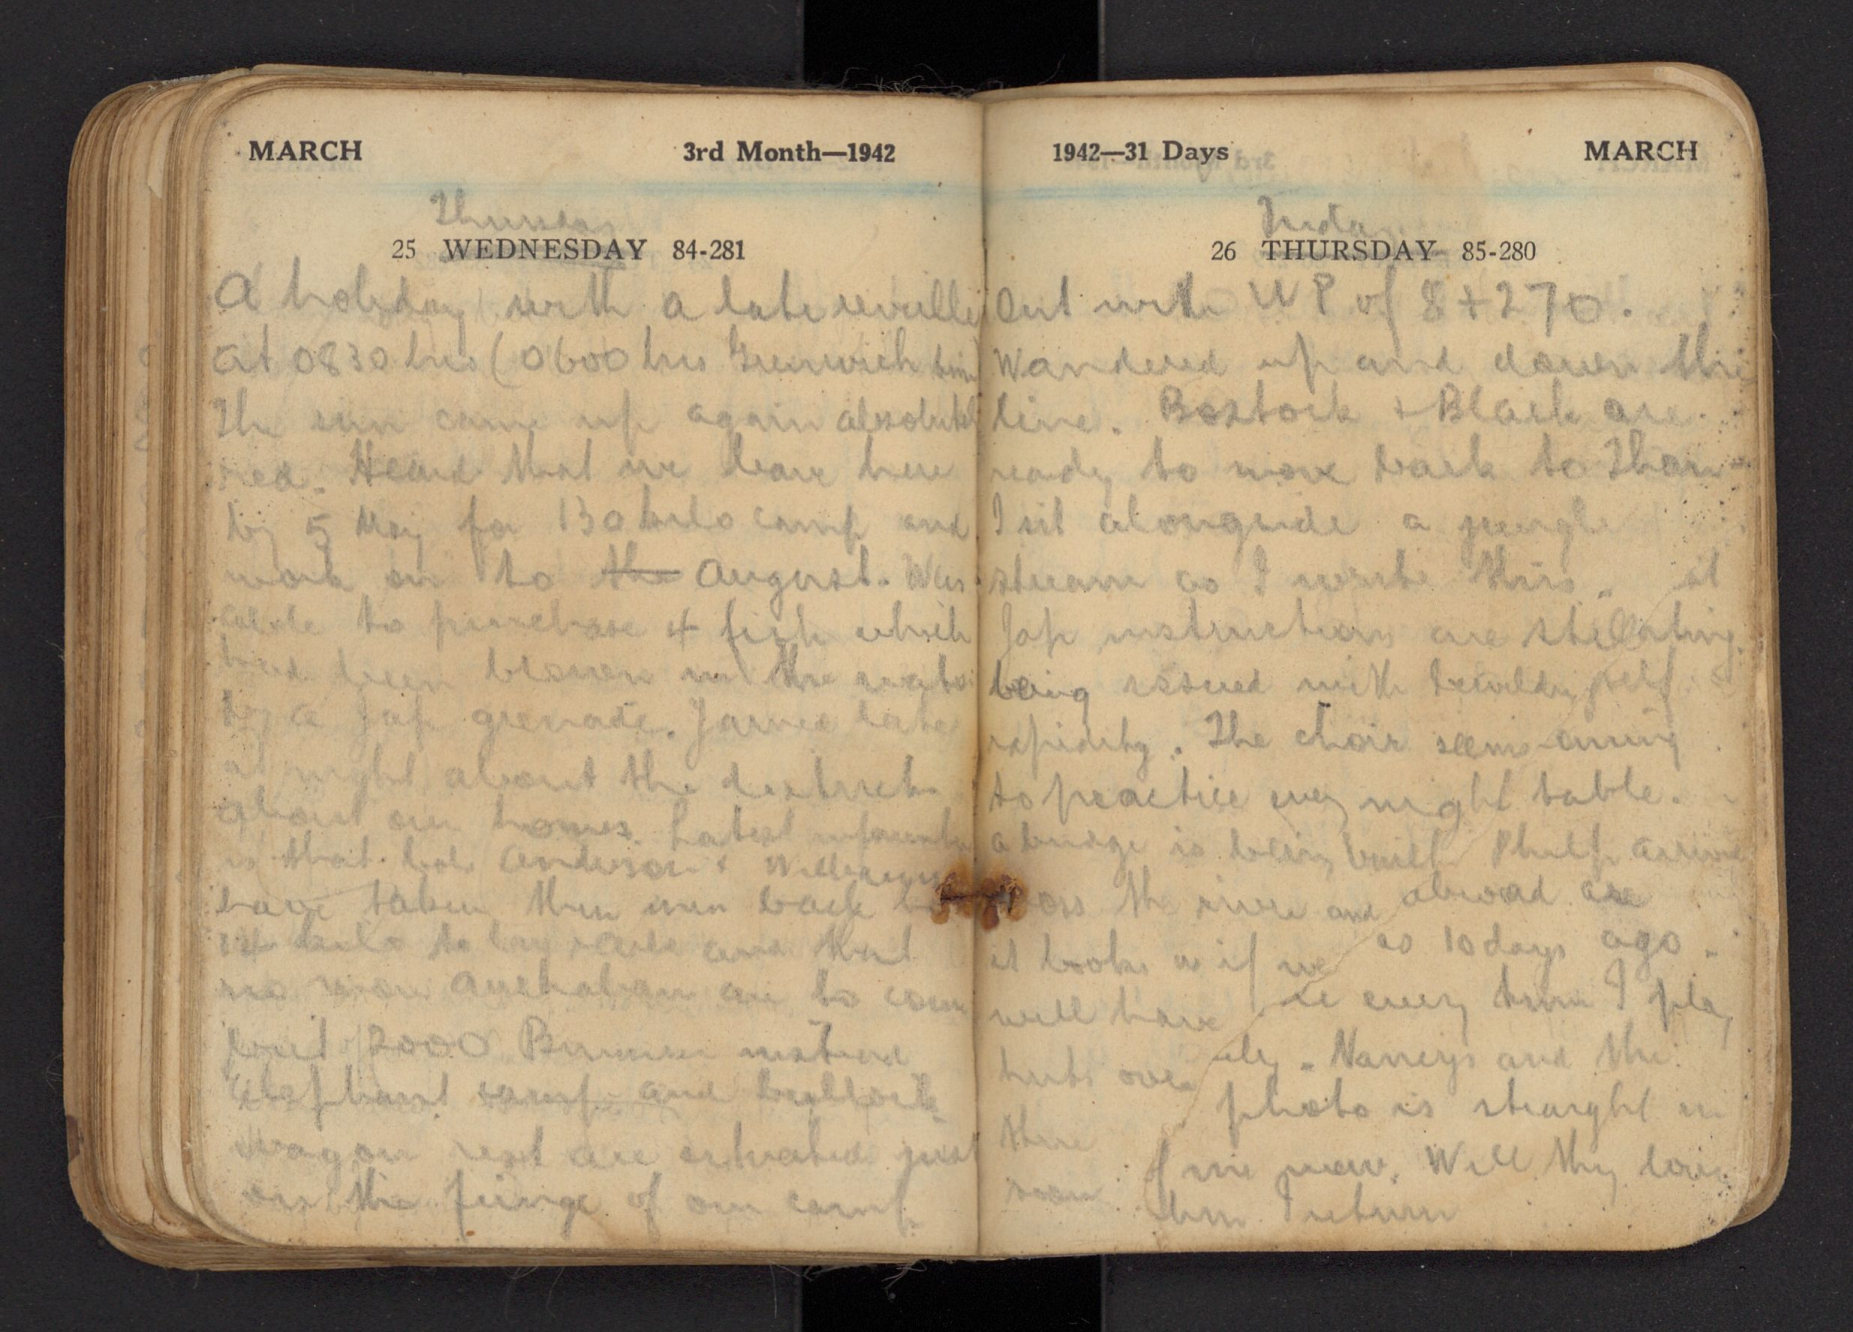 MARCH 3rd Month—1942
Thursday
25 WEDNESDAY 84-281
A holiday with a late reveille
at 0830 hrs (0600 hrs Greenwich time)
The sun came up again absolutely
red. Heard that we leave here
by 5 May for 130 kilo camp and
work on to the August. Was
able to purchase 4 fish which
had been blown in the water
by a Jap grenade. Yarned late
at night about the
about our homes. Latest
is that Col. Anderson & Williams
have taken their men back to
14 kilo to lay rails and that
no more Australian are to come
but 2000 Burmese instead
Elephant camp and bullock
wagon rest are situated just
on the fringe of our camp
1942—31 Days MARCH
Friday
26 THURSDAY 85-280
Out with WP of 8 + 270.
Wandered up and down the
line. Bostock & Black are
ready to move back to Than
I sit alongside a jungle
stream as I write this. at
Jap instructions are still
being issued with bewildering self
rapidity. The choir seems
to practice every night table.
a bridge is being built Philp
oss the river and abroad are
it looks as if we as 10 days ago.
will have every time I play
huts over Nancys and the
there photo is straight in
soon of me now. Will they
I return